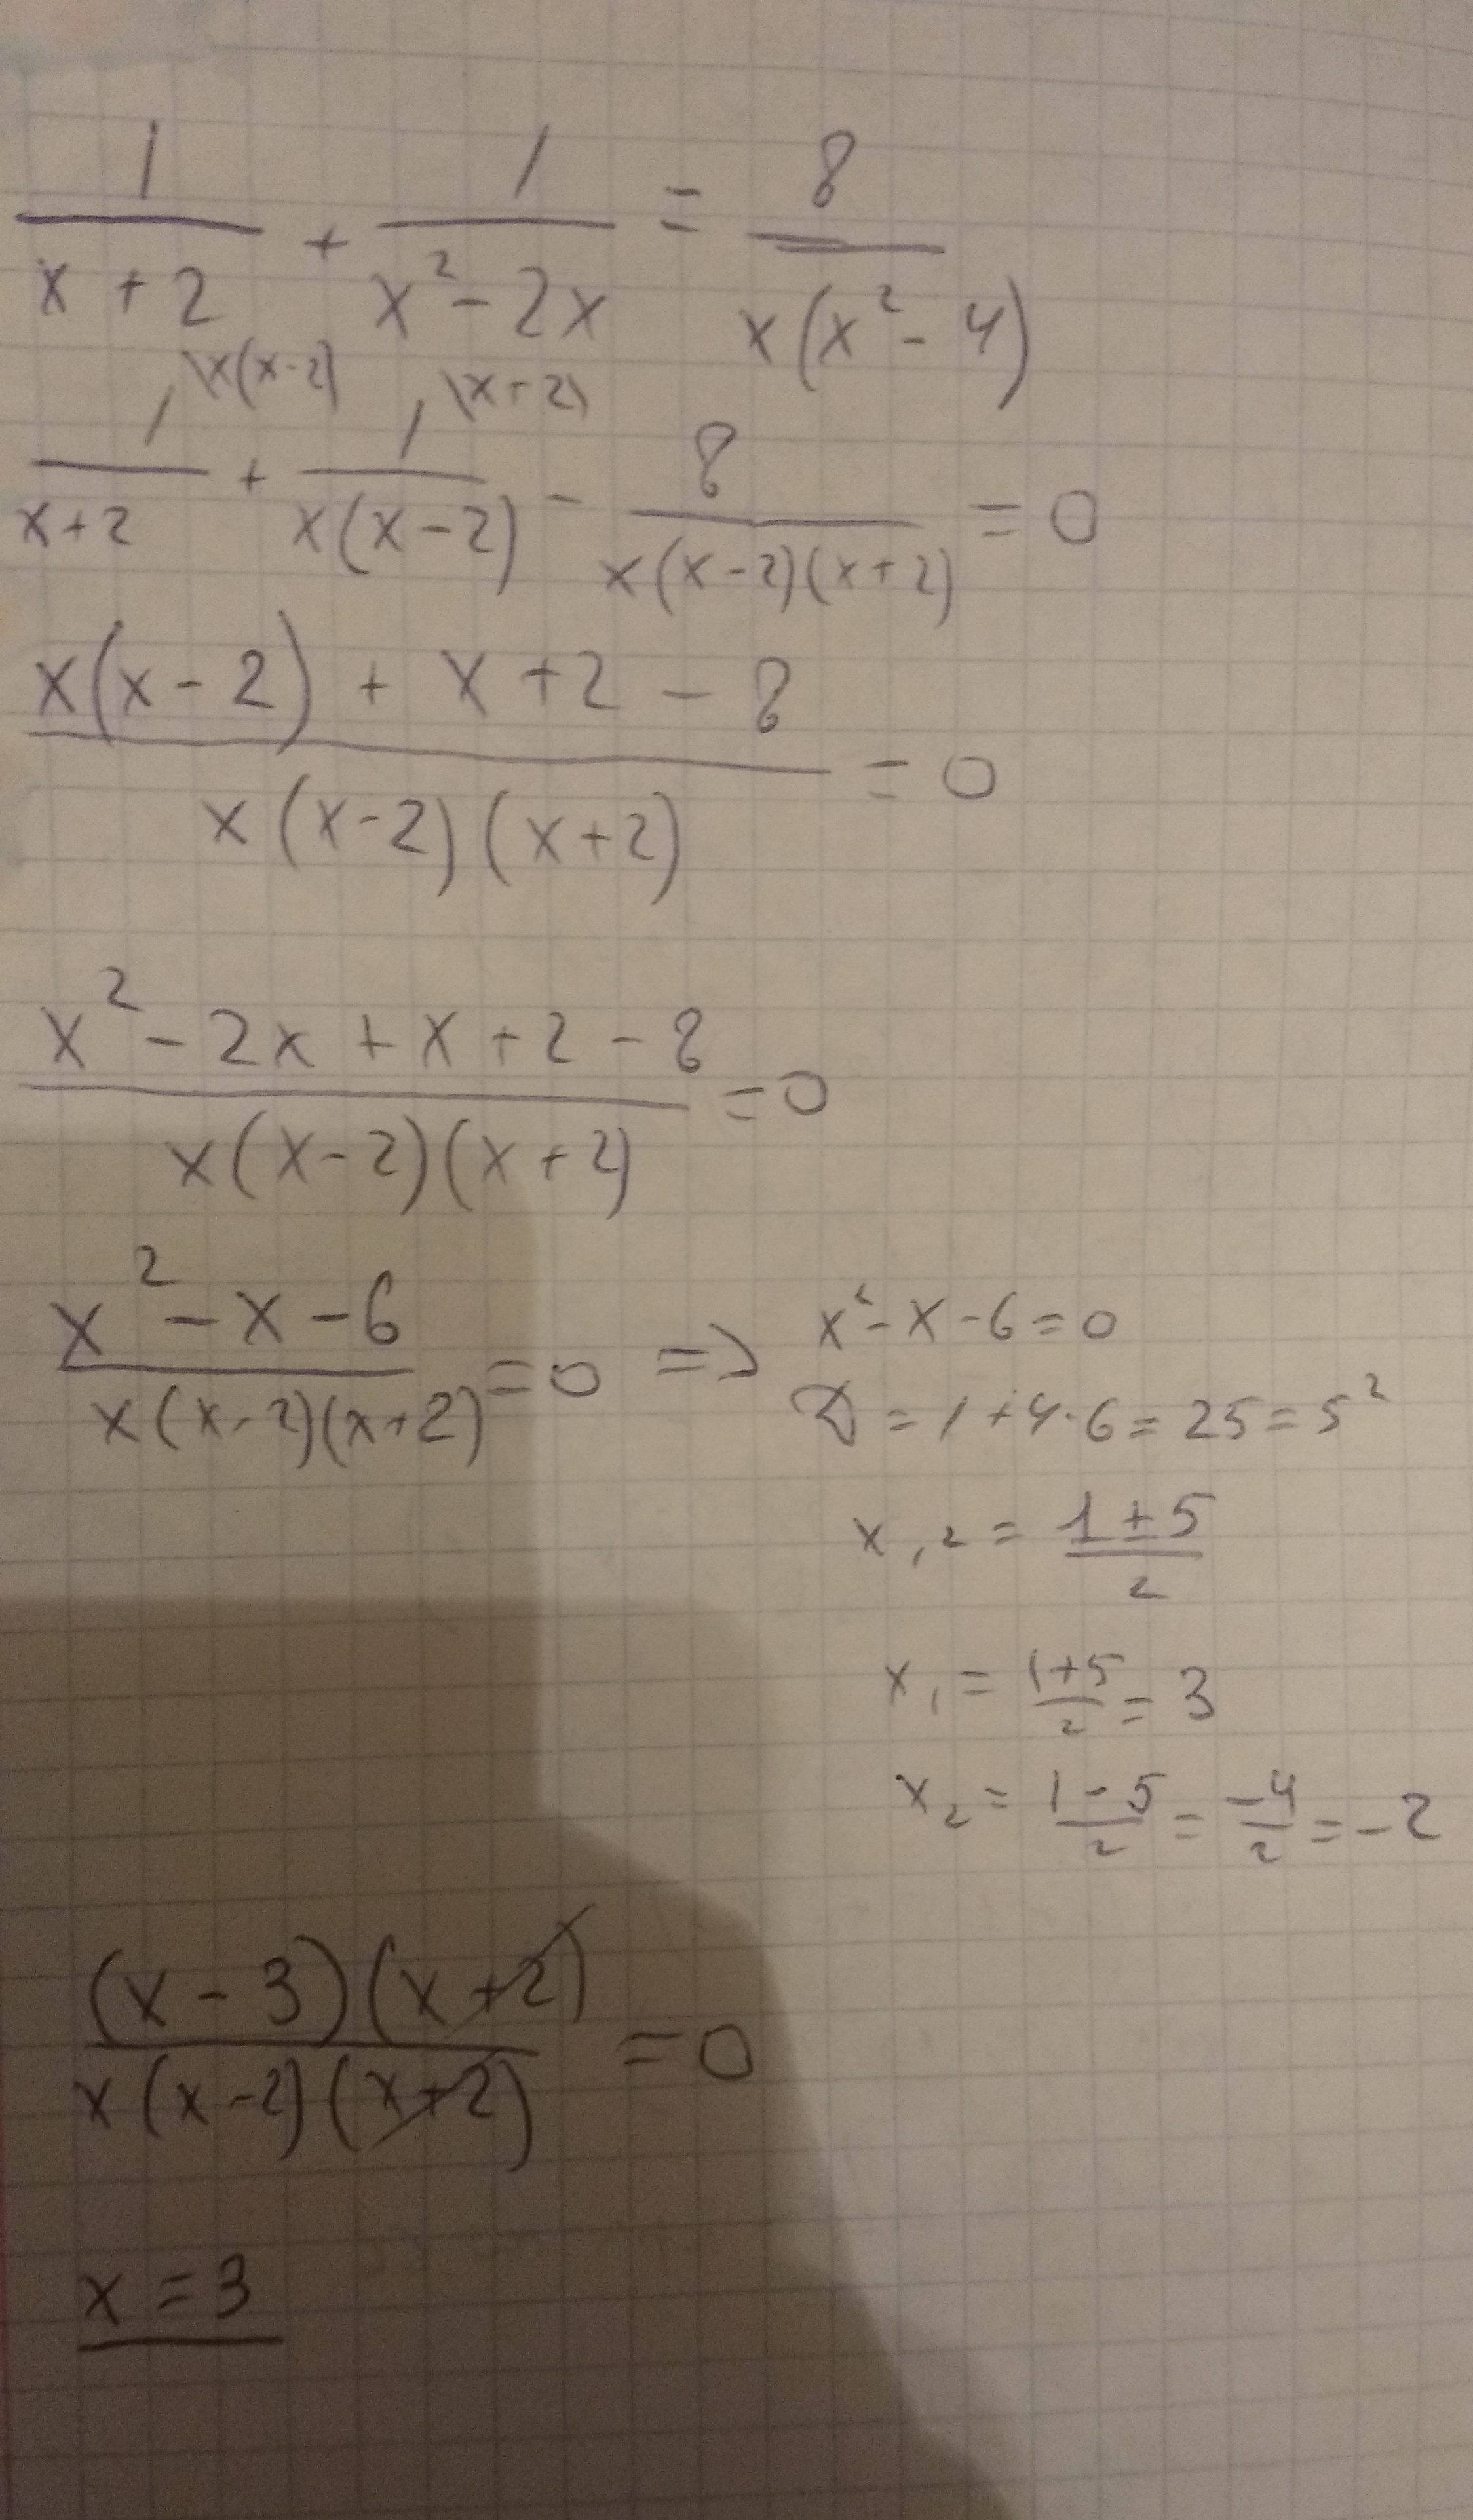 1/(x + 2) + 1/(x² - 2x) = 8/(x(x² - 4))
1\x(x-2)/(x+2) + 1\x+2)/(x(x-2)) - 8/(x(x-2)(x+2)) = 0
(x(x-2) + x + 2 - 8)/(x(x-2)(x+2)) = 0
(x² - 2x + x + 2 - 8)/(x(x-2)(x+2)) = 0
(x² - x - 6)/(x(x-2)(x+2)) = 0 => x² - x - 6 = 0
D = 1 + 4·6 = 25 = 5²
x₁,₂ = (1 ± 5)/2
x₁ = (1+5)/2 = 3
x₂ = (1-5)/2 = -4/2 = -2
((x-3)(x+2))/(x(x-2)(x+2)) = 0
x = 3